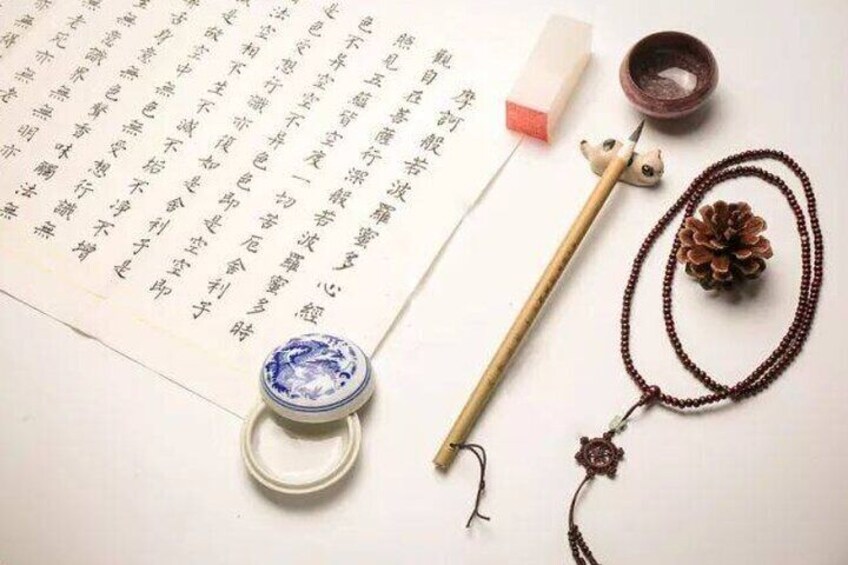 摩訶般若波羅蜜多心經
觀自在菩薩行深般若波羅蜜多時
照見五蘊皆空度一切苦厄舍利子
色不异空空不异色色即是空空即
是色受想行識亦復如是舍利子是
法空相不生不滅不垢不淨不增
是故空中無色無受想行識無
舌身意無色聲香味觸法無
無意識界無無明亦
老死亦無老
無得